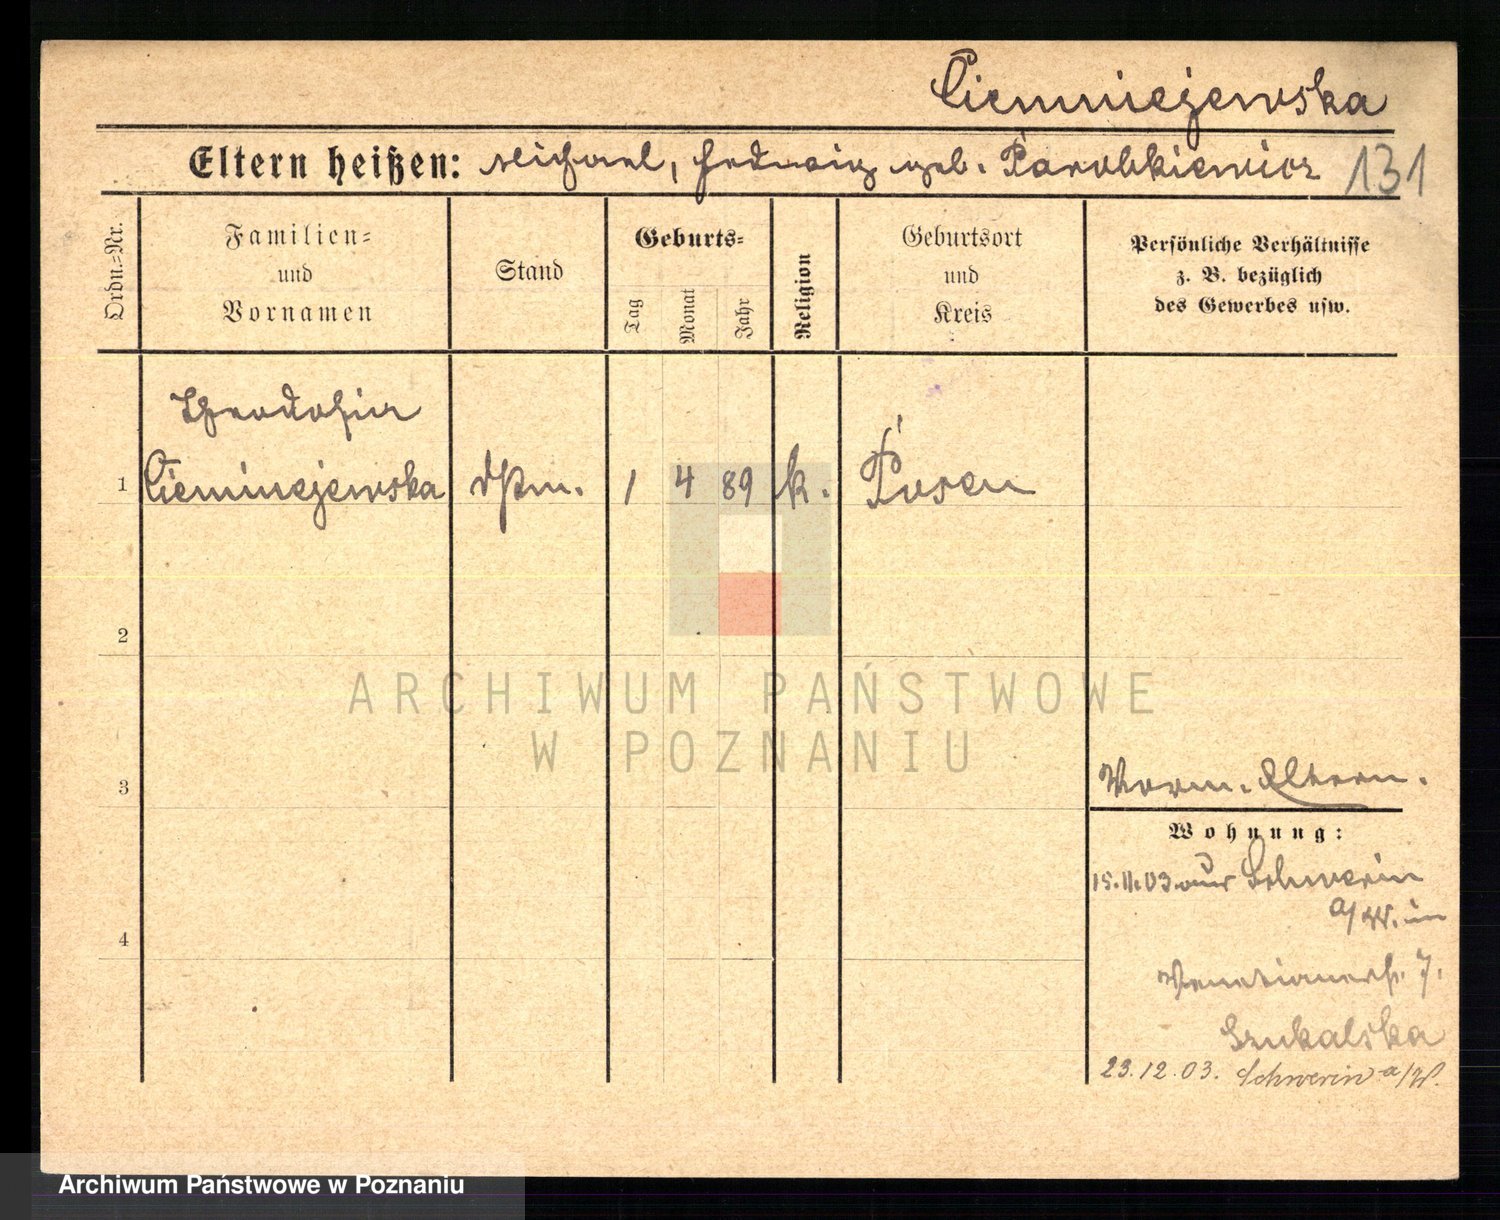 Ciemniejewska
Eltern heißen: Michael, Hedwig geb. Parobkiewicz 131
Ordn.-Nr.
Familien-
und
Vornamen
Stand
Geburts-
Tag
Monat
Jahr
Religion
Geburtsort
und
Kreis
Persönliche Verhältnisse
z. B. bezüglich
des Gewerbes usw.
1
Ciemniejewska
1 4 89 k. Posen
2
ARCHIWUM PAŃSTWOWE
W POZNANIU
3
Vorm. Eltern.
Wohnung:
15.11.03 aus Schwerin
a/W. in
4
Venetianerstr. 7.
Szukalska
23.12.03. Schwerin a/W.
Archiwum Państwowe w Poznaniu